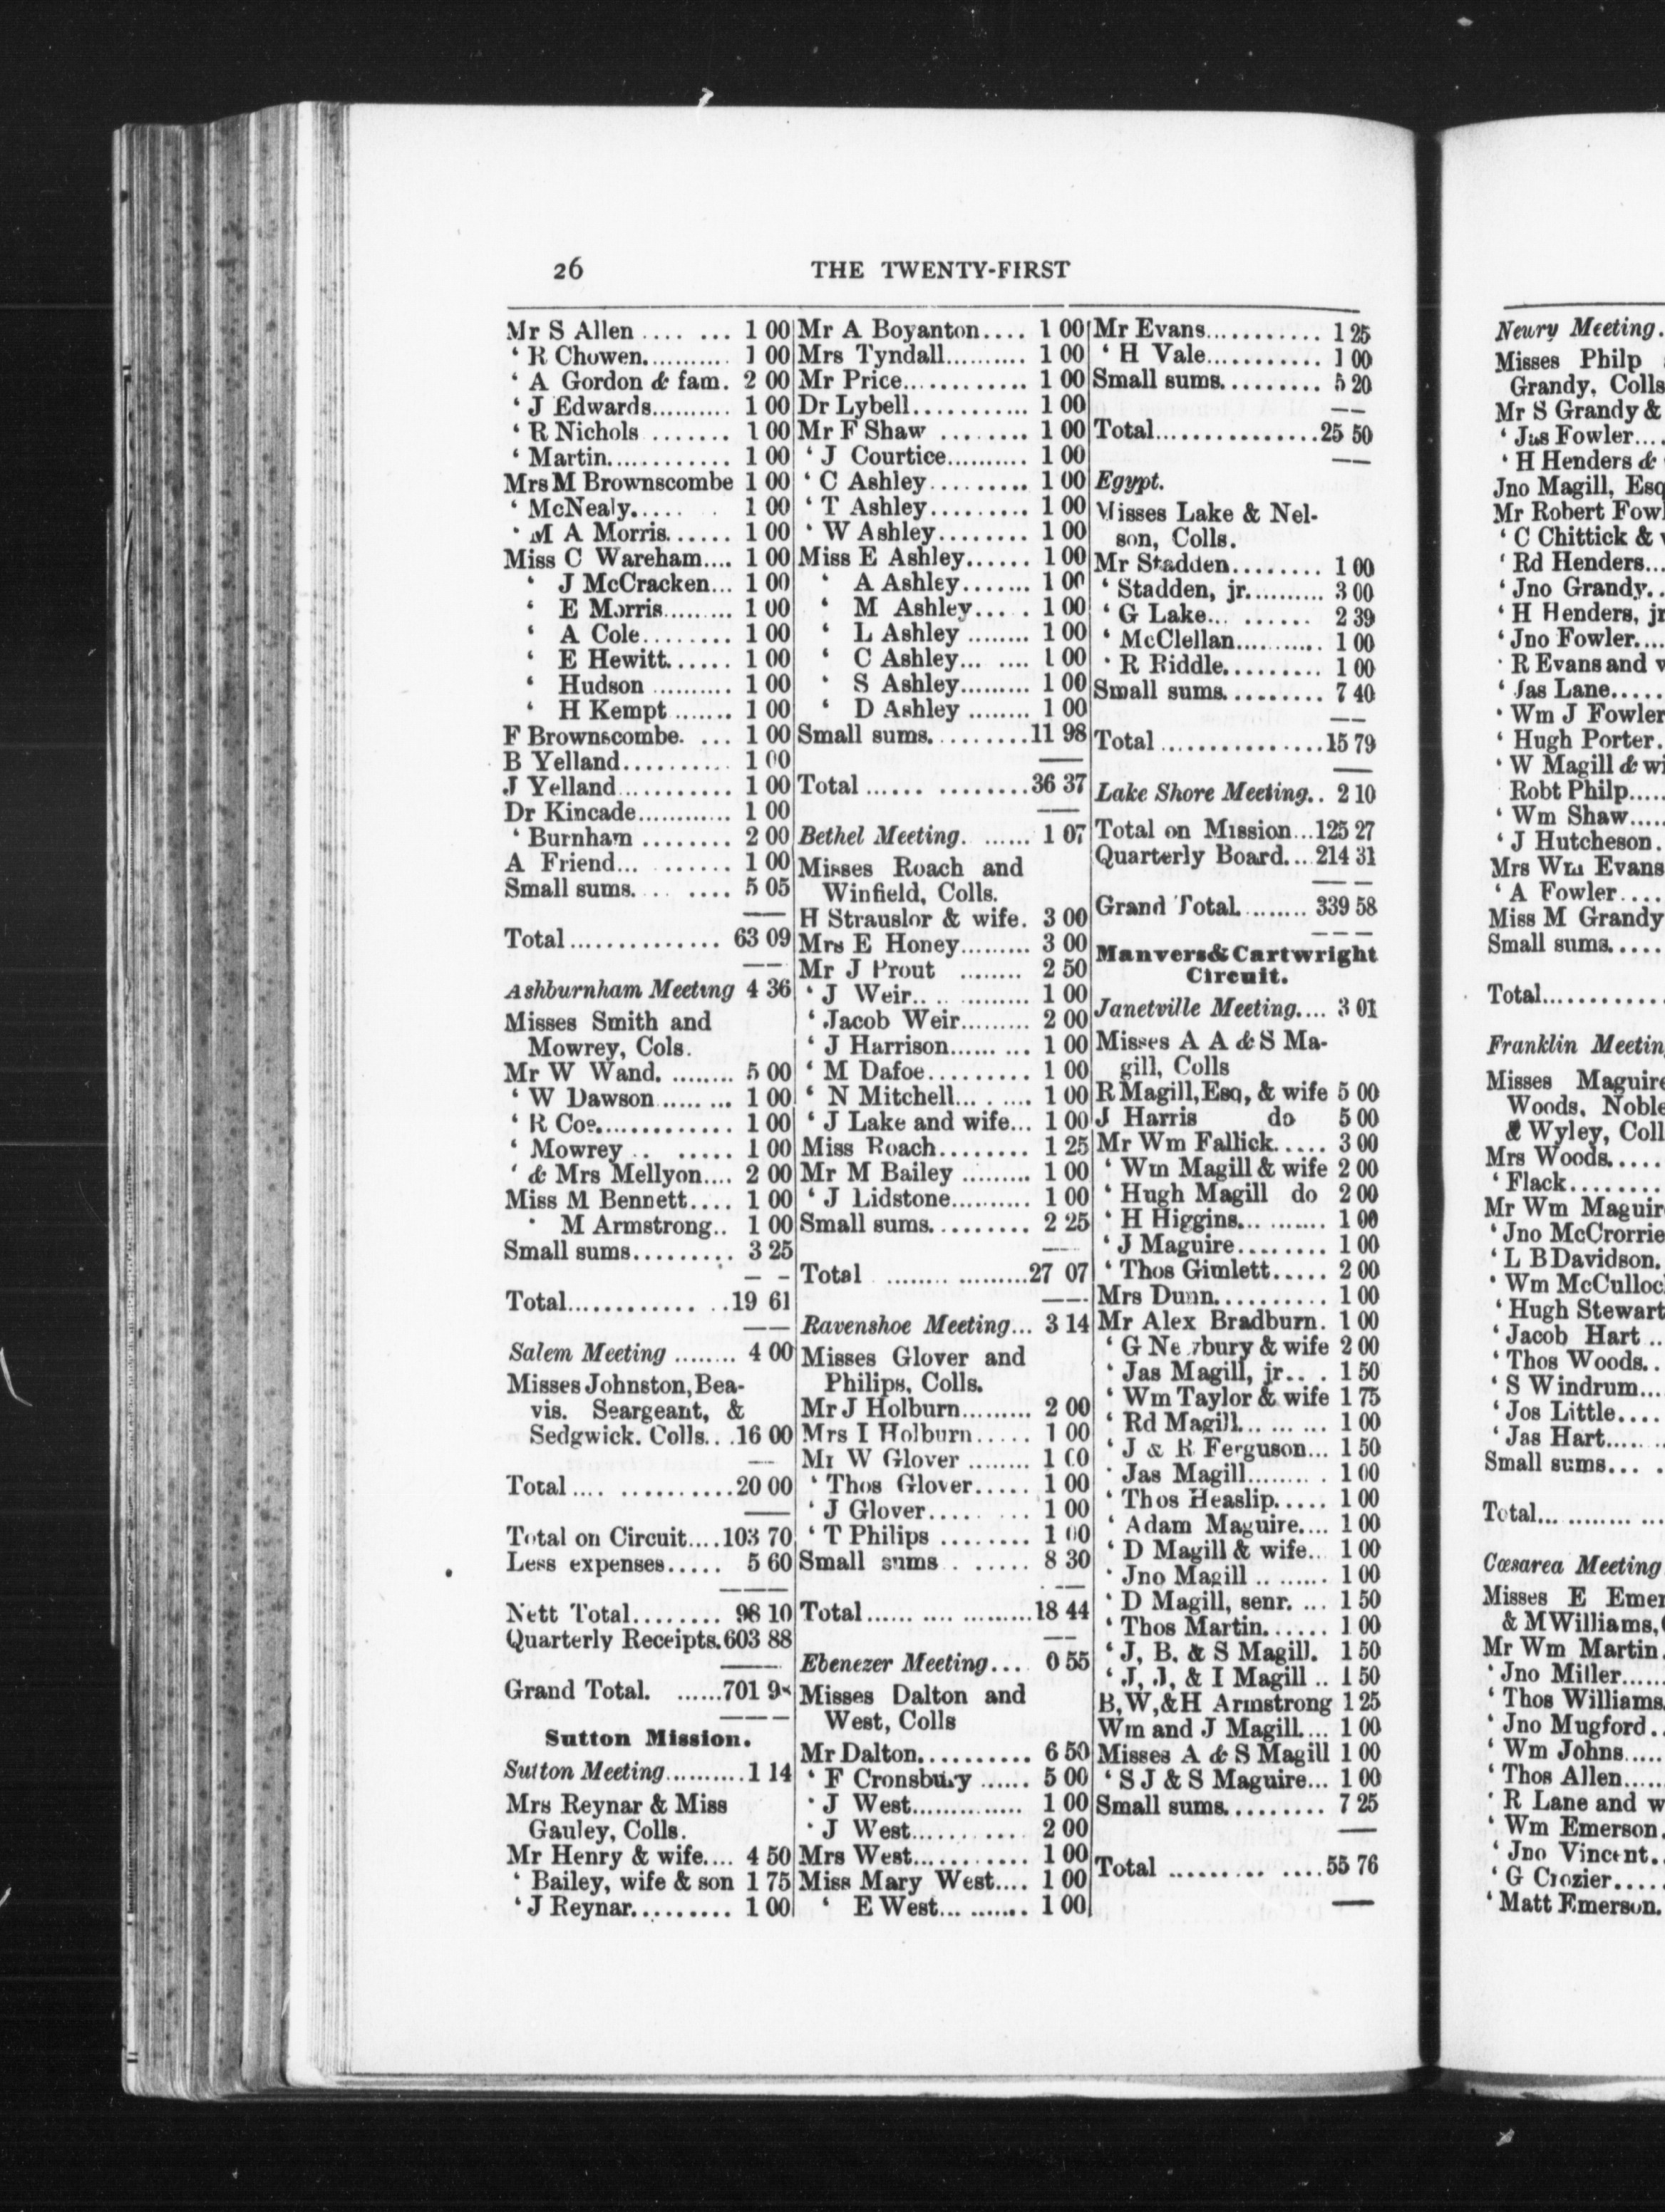 26 THE TWENTY-FIRST
Mr S Allen .... ... 1 00
‘ R Chowen........... 1 00
‘ A Gordon & fam. 2 00
‘ J Edwards.......... 1 00
‘ R Nichols ........ 1 00
‘ Martin............. 1 00
Mrs M Brownscombe 1 00
‘ McNealy..... . 1 00
‘ M A Morris...... 1 00
Miss C Wareham.... 1 00
‘ J McCracken... 1 00
‘ E Morris......... 1 00
‘ A Cole........ 1 00
‘ E Hewitt...... 1 00
‘ Hudson .......... 1 00
‘ H Kempt ....... 1 00
F Brownscombe. ... 1 00
B Yelland........... 1 00
J Yelland............ 1 00
Dr Kincade............ 1 00
‘ Burnham ........ 2 00
A Friend... ....... 1 00
Small sums.... .... 5 05
Total.............. 63 09
Ashburnham Meeting 4 36
Misses Smith and
Mowrey, Cols.
Mr W Wand. ......... 5 00
‘ W Dawson...... ... 1 00
‘ R Coe.............. 1 00
‘ Mowrey .. ..... 1 00
‘ & Mrs Mellyon.... 2 00
Miss M Bennett.... 1 00
‘ M Armstrong.. 1 00
Small sums......... 3 25
Total............ ..19 61
Salem Meeting ........ 4 00
Misses Johnston, Bea-
vis. Seargeant, &
Sedgwick. Colls.. .16 00
Total.... ...........20 00
Total on Circuit....103 70
Less expenses..... 5 60
Nett Total........ 98 10
Quarterly Receipts.603 88
Grand Total. ......701 98
Sutton Mission.
Sutton Meeting..........1 14
Mrs Reynar & Miss
Gauley, Colls.
Mr Henry & wife.... 4 50
‘ Bailey, wife & son 1 75
‘ J Reynar......... 1 00
Mr A Boyanton.... 1 00
Mrs Tyndall.......... 1 00
Mr Price............. 1 00
Dr Lybell........... 1 00
Mr F Shaw ......... 1 00
‘ J Courtice.......... 1 00
‘ C Ashley......... 1 00
‘ T Ashley......... 1 00
‘ W Ashley........ 1 00
Miss E Ashley...... 1 00
‘ A Ashley....... 1 00
‘ M Ashley..... 1 00
‘ L Ashley ........ 1 00
‘ C Ashley... .... 1 00
‘ S Ashley......... 1 00
‘ D Ashley ........ 1 00
Small sums..........11 98
Total ...... .........36 37
Bethel Meeting. ...... 1 07
Misses Roach and
Winfield, Colls.
H Strauslor & wife. 3 00
Mrs E Honey......... 3 00
Mr J Prout ........ 2 50
‘ J Weir.. .......... 1 00
‘ Jacob Weir......... 2 00
‘ J Harrison...... ... 1 00
‘ M Dafoe......... 1 00
‘ N Mitchell... . .... 1 00
‘ J Lake and wife... 1 00
Miss Roach........ 1 25
Mr M Bailey ......... 1 00
‘ J Lidstone.......... 1 00
Small sums......... 2 25
Total ........ .........27 07
Ravenshoe Meeting... 3 14
Misses Glover and
Philips, Colls.
Mr J Holburn......... 2 00
Mrs I Holburn..... 1 00
Mr W Glover ........ 1 00
‘ Thos Glover..... 1 00
‘ J Glover..... ... 1 00
‘ T Philips ........ 1 00
Small sums .. ..... 8 30
Total...... .... .........18 44
Ebenezer Meeting... 0 55
Misses Dalton and
West, Colls
Mr Dalton.......... 6 50
‘ F Cronsbury ...... 5 00
‘ J West.............. 1 00
‘ J West............. 2 00
Mrs West............ 1 00
Miss Mary West.... 1 00
‘ E West... ....... 1 00
Mr Evans............ 1 25
‘ H Vale............ 1 00
Small sums.......... 5 20
Total...............25 50
Egypt.
Misses Lake & Nel-
son, Colls.
Mr Stadden......... 1 00
‘ Stadden, jr.......... 3 00
‘ G Lake... ....... 2 39
‘ McClellan........... 1 00
‘ R Riddle.......... 1 00
Small sums.......... 7 40
Total ...............15 79
Lake Shore Meeting.. 2 10
Total on Mission...125 27
Quarterly Board... 214 31
Grand Total......... 339 58
Manvers & Cartwright
Circuit.
Janetville Meeting.... 3 01
Misses A A & S Ma-
gill, Colls
R Magill, Esq, & wife 5 00
J Harris do 5 00
Mr Wm Fallick..... 3 00
‘ Wm Magill & wife 2 00
‘ Hugh Magill do 2 00
‘ H Higgins... ....... 1 00
‘ J Maguire........ 1 00
‘ Thos Gimlett..... 2 00
Mrs Dunn.......... 1 00
Mr Alex Bradburn. 1 00
‘ G Ne rbury & wife 2 00
‘ Jas Magill, jr.. . 1 50
‘ Wm Taylor & wife 1 75
‘ Rd Magill... ... ... 1 00
‘ J & R Ferguson... 1 50
‘ Jas Magill........ . 1 00
‘ Thos Heaslip..... 1 00
‘ Adam Maguire.... 1 00
‘ D Magill & wife.. 1 00
‘ Jno Magill .. ....... 1 00
‘ D Magill, senr. ... 1 50
‘ Thos Martin...... 1 00
‘ J, B. & S Magill. 1 50
‘ J, J, & I Magill .. 1 50
B, W, & H Armstrong 1 25
Wm and J Magill.... 1 00
Misses A & S Magill 1 00
‘ S J & S Maguire... 1 00
Small sums.......... 7 25
Total ......... .......55 76
Newry Meeting.
Misses Philp
Grandy, Colls
Mr S Grandy &
‘ Jas Fowler....
‘ H Henders &
Jno Magill, Esq
Mr Robert Fowl
‘ C Chittick &
‘ Rd Henders...
‘ Jno Grandy..
‘ H Henders, jr
‘ Jno Fowler....
‘ R Evans and
‘ Jas Lane.....
‘ Wm J Fowler
‘ Hugh Porter.
‘ W Magill & wi
Robt Philp.....
‘ Wm Shaw.....
‘ J Hutcheson.
Mrs Wm Evans
‘ A Fowler....
Miss M Grandy
Small sums.....
Total............
Franklin Meetin
Misses Maguire
Woods, Noble
& Wyley, Coll
Mrs Woods.....
‘ Flack........
Mr Wm Maguir
‘ Jno McCrorrie
‘ L B Davidson.
‘ Wm McCulloc
‘ Hugh Stewart
‘ Jacob Hart ..
‘ Thos Woods..
‘ S Windrum...
‘ Jos Little....
‘ Jas Hart.....
Small sums... .
Total... ......... ...
Cœsarea Meeting
Misses E Emer
& M Williams,
Mr Wm Martin.
‘ Jno Miller......
‘ Thos Williams
‘ Jno Mugford..
‘ Wm Johns.....
‘ Thos Allen......
‘ R Lane and w
‘ Wm Emerson.
‘ Jno Vincent.
‘ G Crozier.....
‘ Matt Emerson.